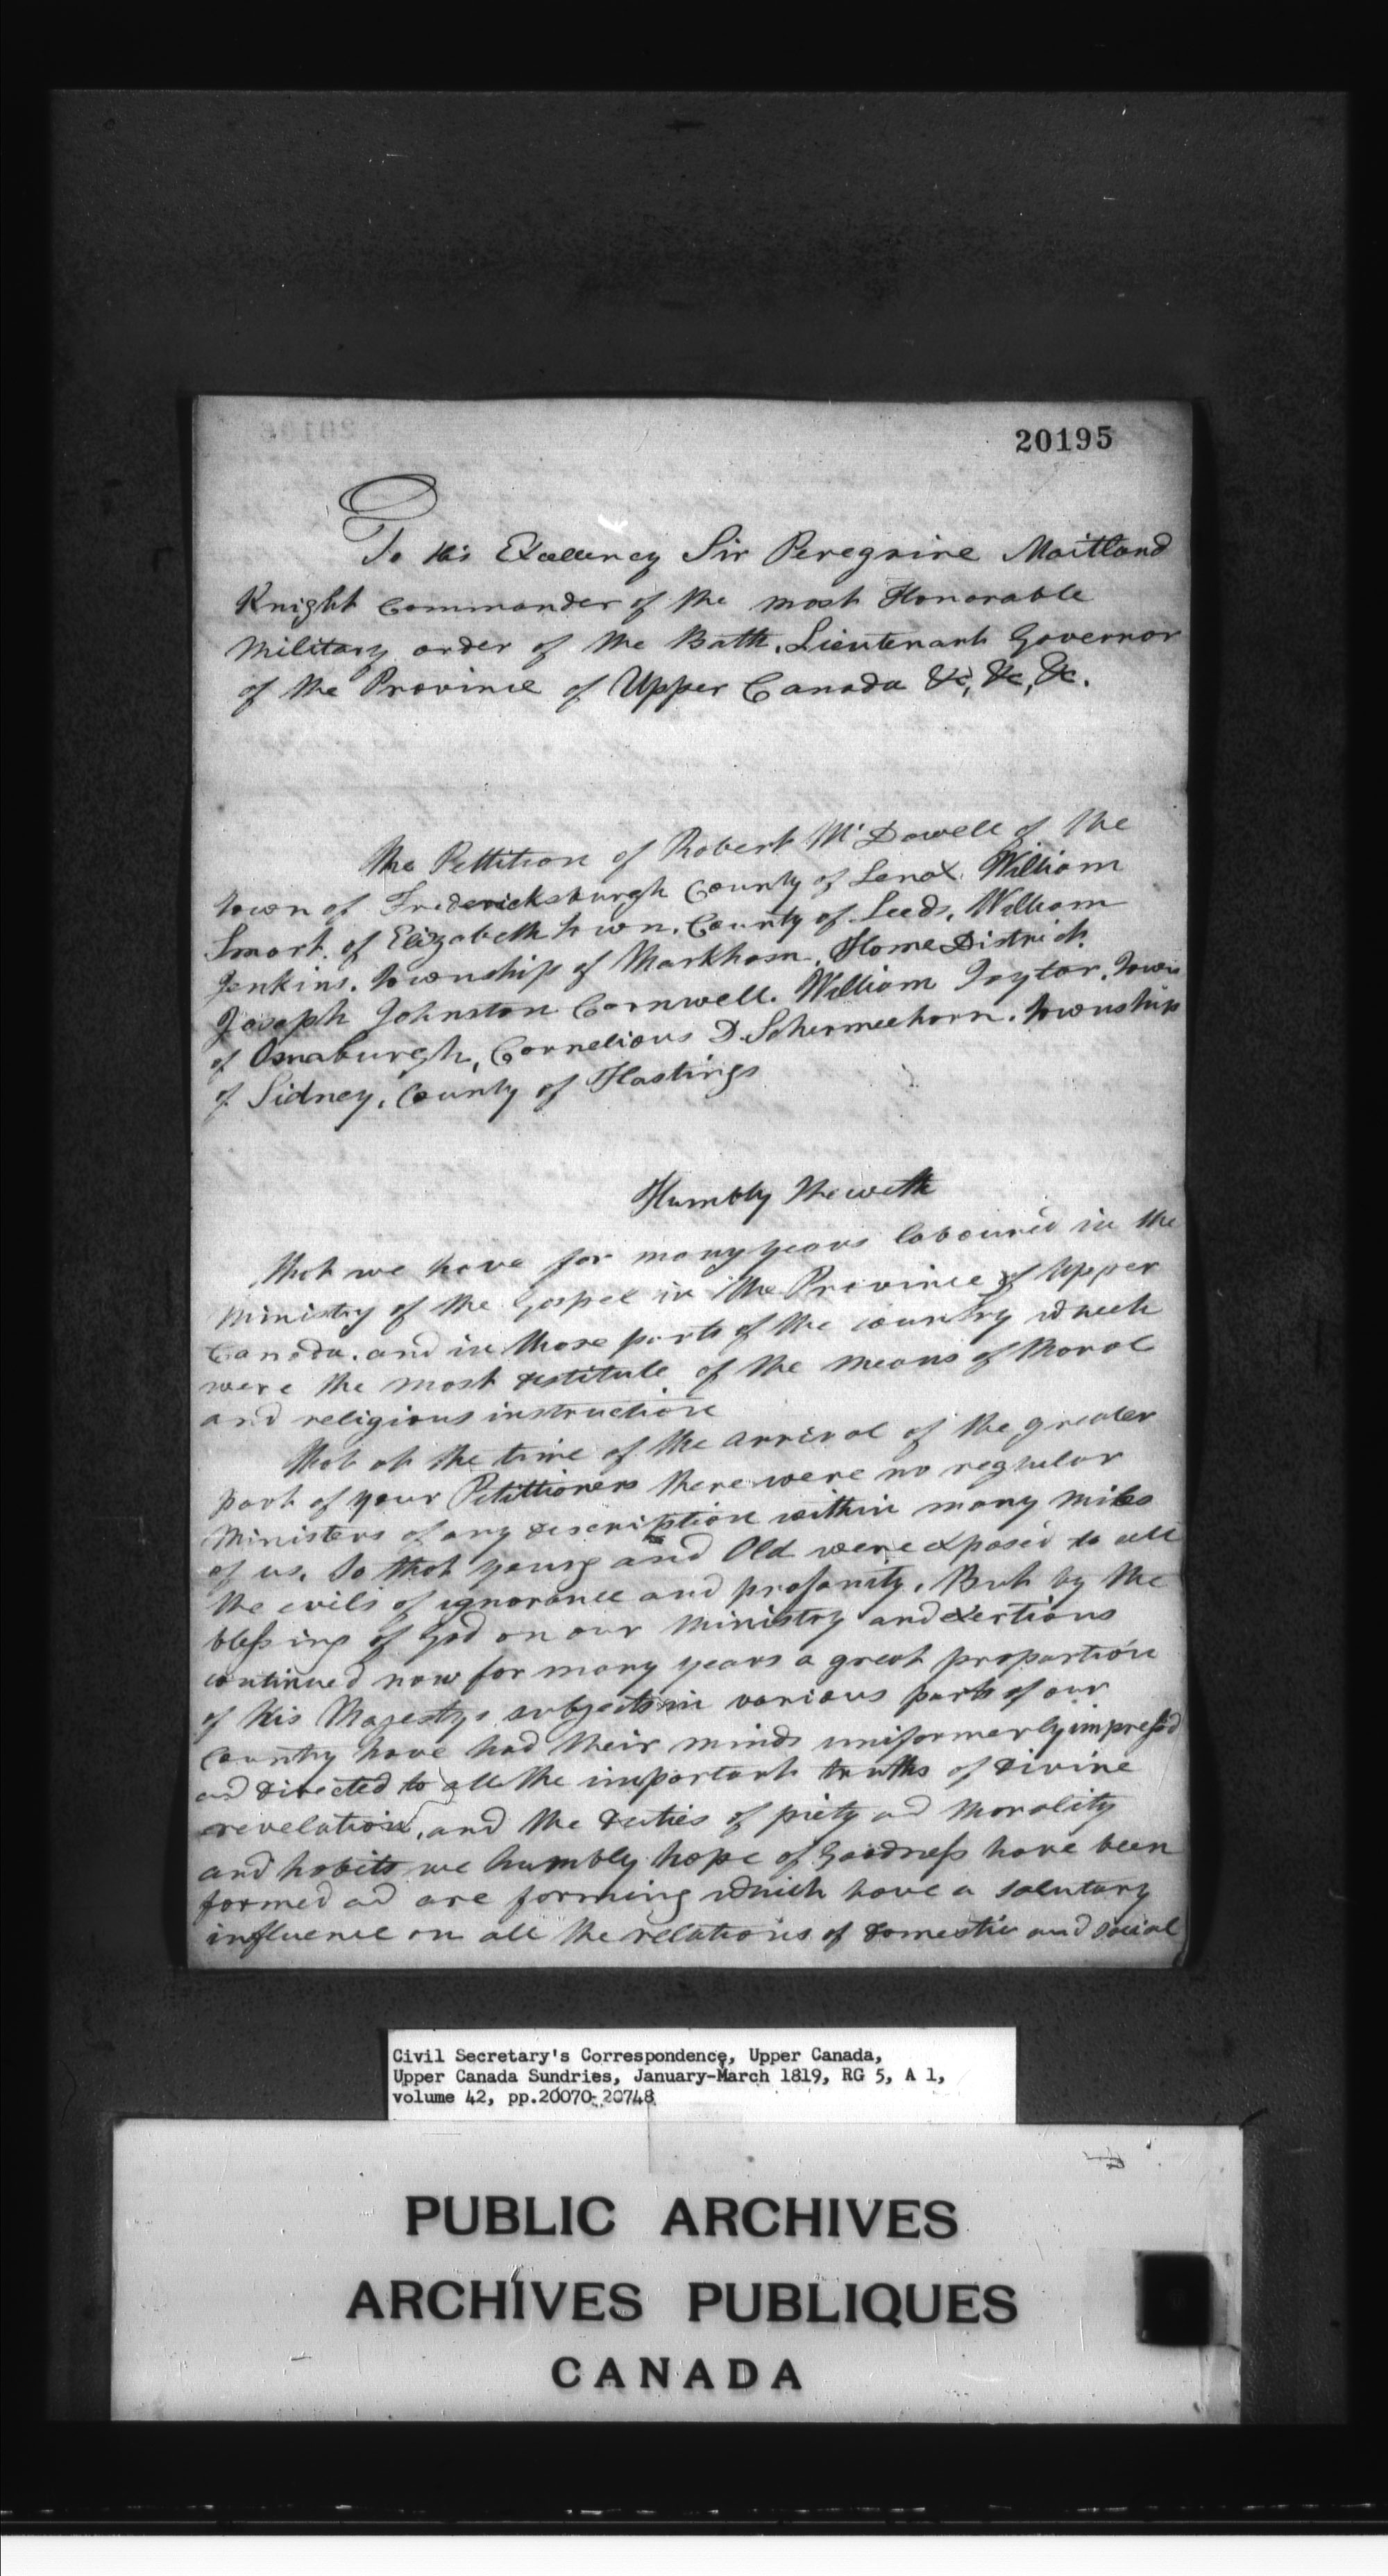 20195
To His Excellency Sir Peregrine Maitland
Knight Commander of the most Honorable
Military order of the Bath, Lieutenant Governor
of the Province of Upper Canada &c, &c, &c.
The Pettition of Robert McDowell of the
town of Fredericksburgh County of Lenox. William
Smart. of Elizabeth town. County of Leeds, William
Jenkins. township of Markham. Home District.
Joseph Johnston Cornwell. William Taylor. Town
of Osnaburgh, Cornelious D. Schermeehorn. township
of Sidney. County of Hastings
Humbly Sheweth
that we have for many years laboured in the
Ministry of the Gospel in the Province of Upper
Canada. and in those parts of the country which
were the most destitute of the means of Moral
and religious instruction
That at the time of the arrival of the greater
part of your Petittioners there were no reghular
Ministers of any description within many miles
of us. So that young and Old were exposed to all
the evils of ignorance and profanity. But by the
blessing of God on our Ministry and exertions
continued now for many years a great proportion
of his Majestys subjects in various parts of our
Country have had their minds uniformerly impressd
and directed to all the important truths of divine
revelation, and the duties of piety ad Morality
and habits we humbly hope of Goodness have been
formed ad are forming which have a salutary
influence on all the relations of domestic and social
Civil Secretary's Correspondence, Upper Canada,
Upper Canada Sundries, January-March 1819, RG 5, A 1,
volume 42, pp.20070-20748
PUBLIC ARCHIVES
ARCHIVES PUBLIQUES
CANADA